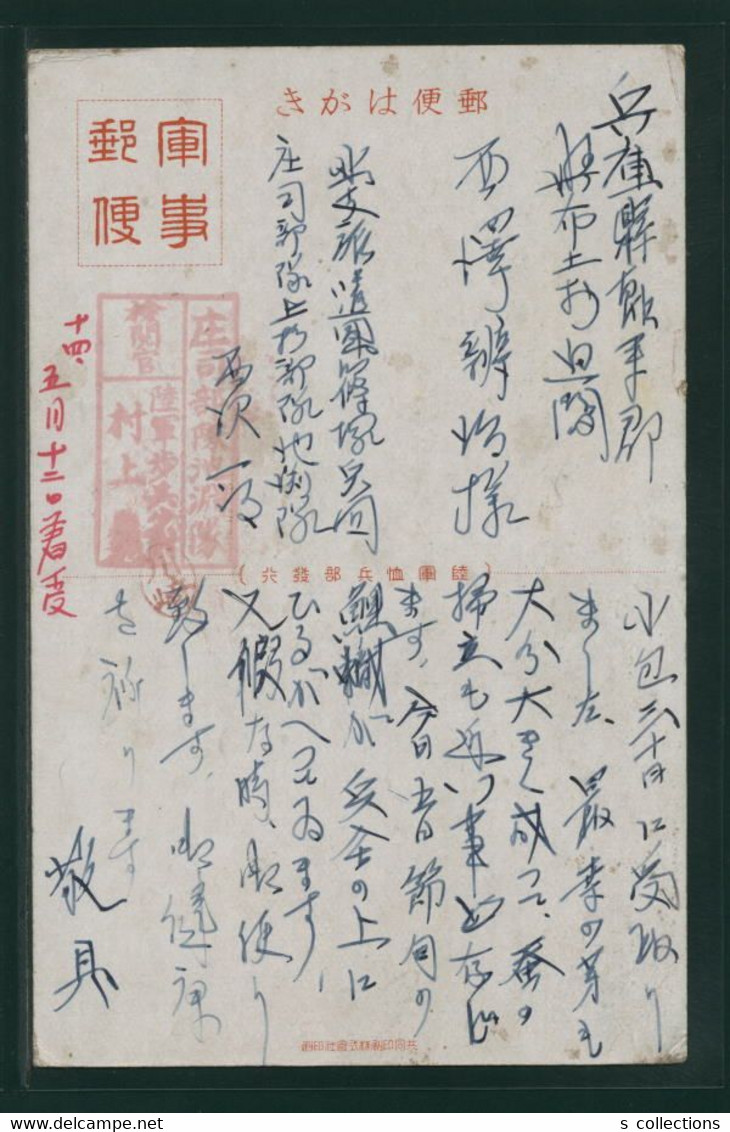 郵便はがき
軍事郵便
兵庫縣飾磨郡
西澤 様
庄司部隊 部隊池渕隊
検閲官
庄司部隊池渕隊
陸軍歩兵
村上
十四、五月十二日着受
(陸軍恤兵部發行)
小包三十日に受取り
ました、最
大分大きく成って、蚕の
掃立も近い事と存じ
ます、今日五日節句の
鯉幟が兵舎の上に
ひるがへってゐます、
又暇な時、御便り
致します、御健康
を祈ります
敬具
共同印刷株式會社印刷
s collections